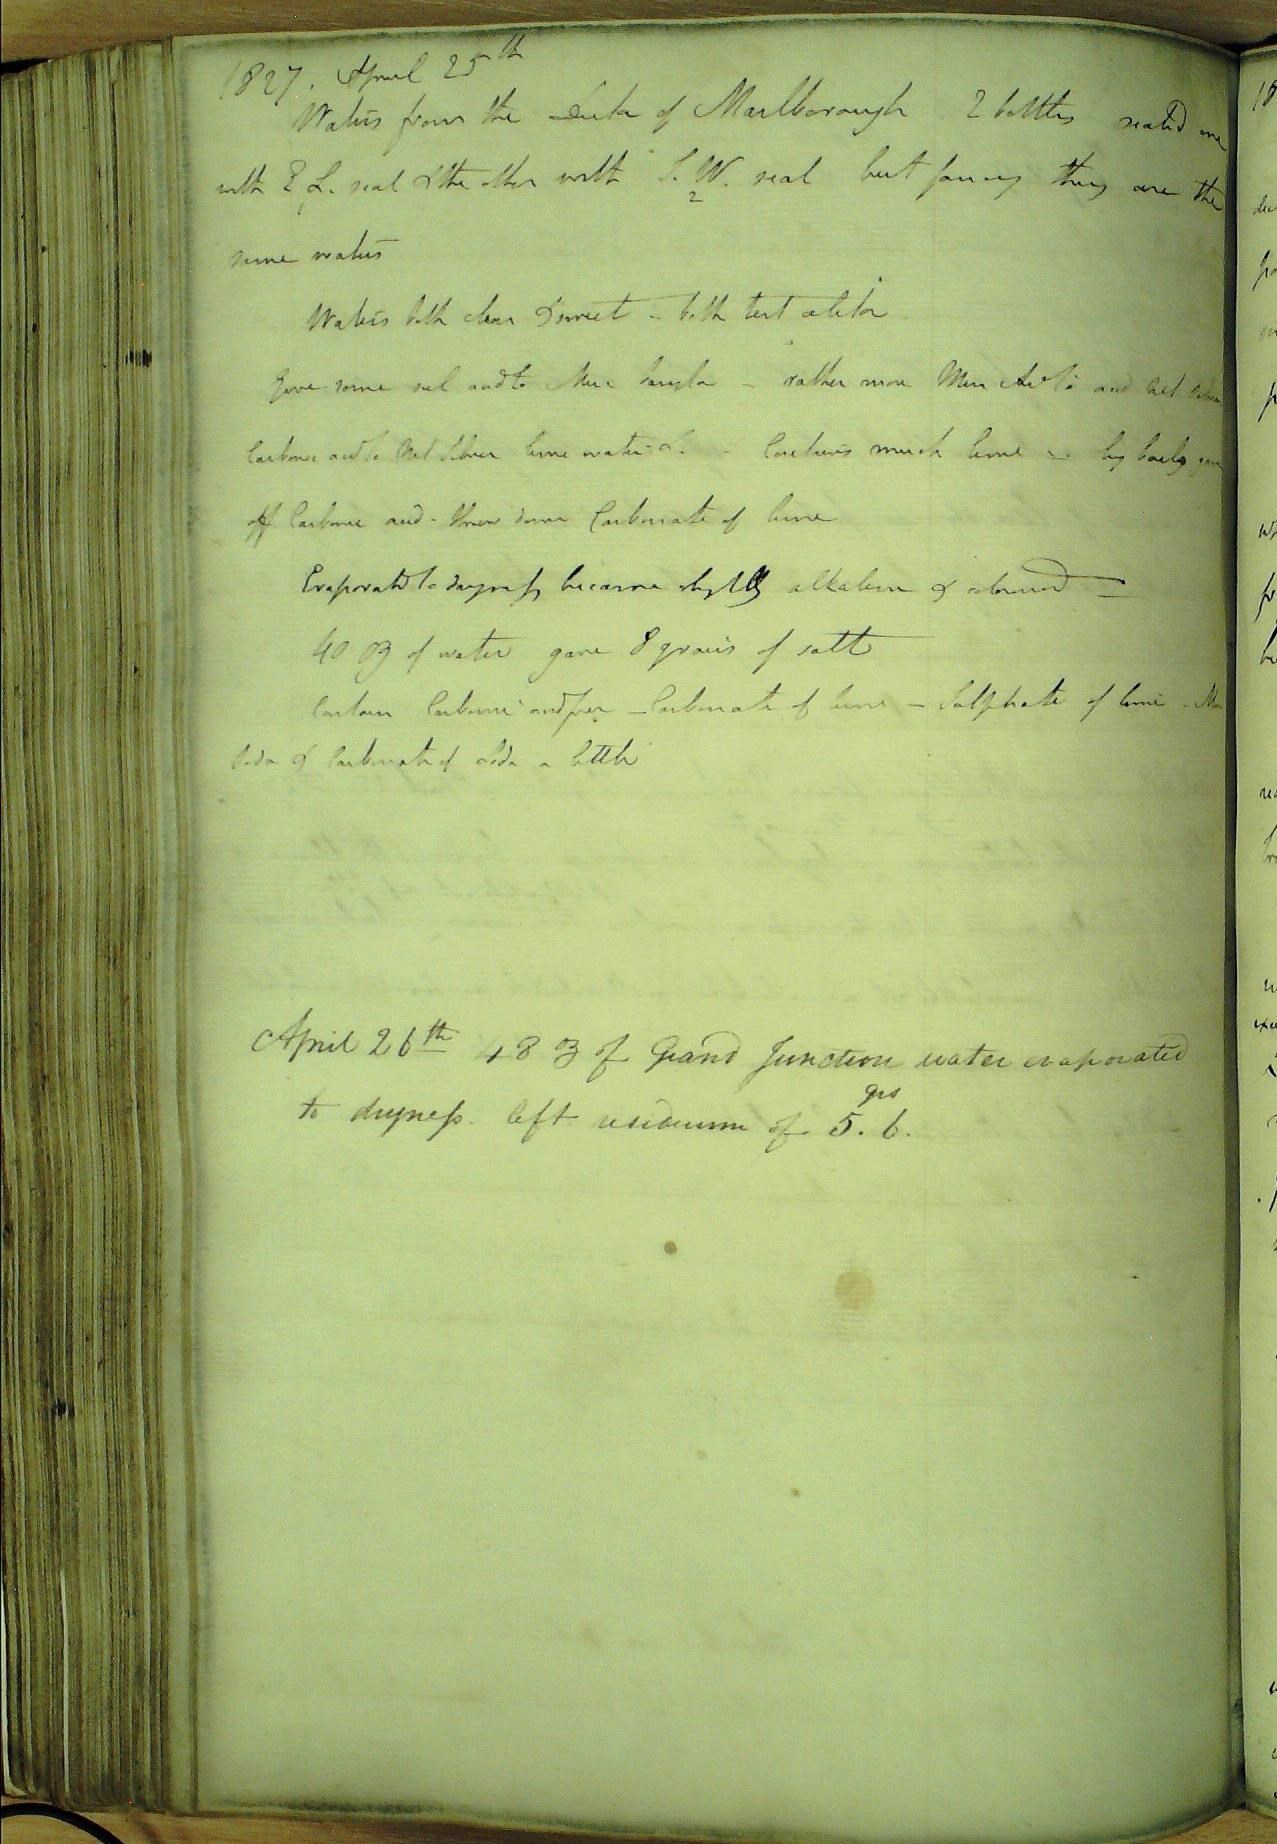 1827. April 25th
Waters from the Duke of Marlborough 2 bottles sealed one
with E L. seal & the other with S. W. seal but fancy they are the
2
same waters
Waters both clear & sweet - both test
Gave some sul acid to Mur - rather more Mur and
Carbonic acid to lime water - Contains much lime - by boilg gave
off Carbonic acid - threw down Carbonate of lime
Evaporatd to dryness became slightly alkaline & coloured -
40 oz of water gave 8 grains of salt
Contain Carbonic acid free - Carbonate of lime - Sulphate of lime - Mur
Soda & Carbonate of soda a little
April 26th 48 oz of Grand Junction water evaporated
to dryness. left residuum of 5. 6.
grs